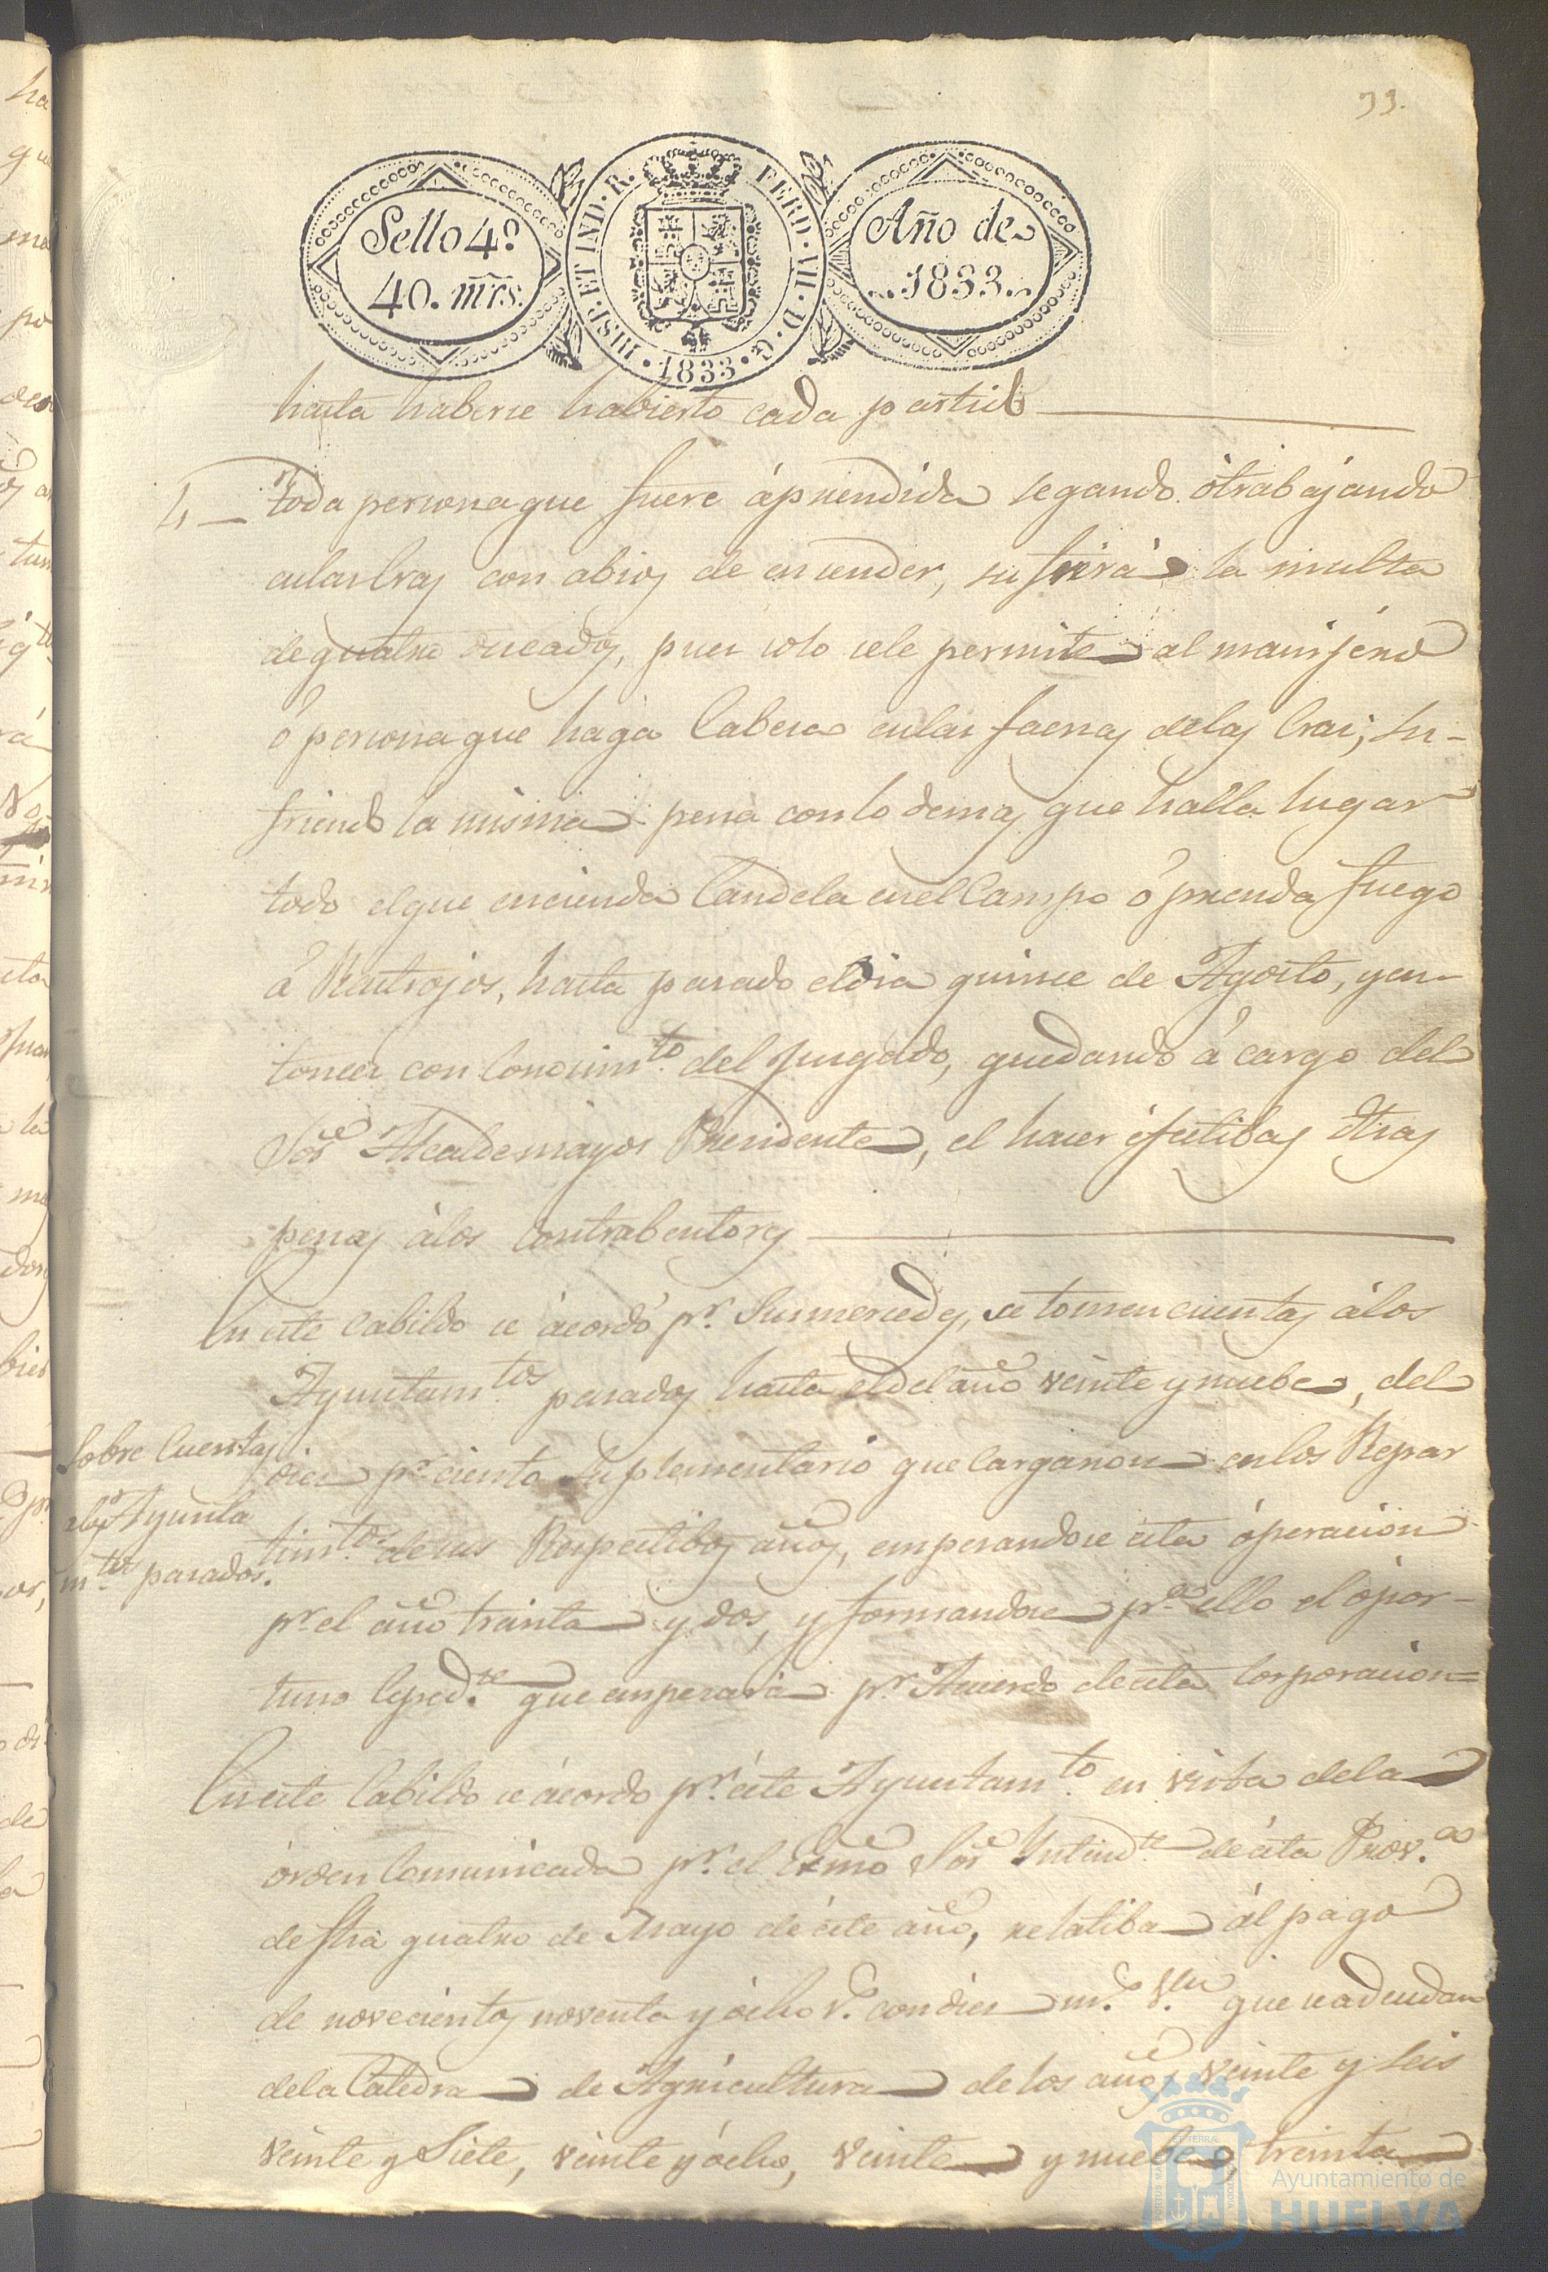 33.
Sello 4º
40. mrs.
HISP. ET IND. R. FERD. VII. D. G. 1833
Año de
1833.
hasta haberse habierto cada partido
4 Toda persona que fuere áprendida segando ótrabajando
en las Eras con abios de encender, sufrirá la multa
de quatro ducados, pues solo sele permite al manijéro
ó persona que haga Cabesa en las faenas delas Eras; su-
friendo la misma pena con lo demas que halla lugar
todo elque encienda Candela en el Campo ó prenda fuego
á Rastrojos, hasta pasado eldia quince de Agosto, y en-
tonces con Conocimto. del Jusgado, quedando á cargo del
Sor. Alcalde mayor Presidente, el hacer éfectibas dhas
penas álos contrabentores
En este Cabildo se ácordó pr. Susmercedes, se tomen cuentas álos
Ayuntamtos pasados hasta eldel año veinte y nuebe, del
Sobre Cuentas
dies pr. ciento Suplementario que Cargaron en los Repar
Ayunta
timtos. de sus Respectibos años, empesandose esta óperacion
mtos pasados.
pr. el año treinta y dos, y formandose pa. ello el ópor-
tuno Exped.te que empesará pr. Acuerdo de esta Corporacion=
En este Cabildo se ácordo pr. éste Ayuntamto. en vista dela
órden Comunicada pr. el Exmo Sor. Intendte. de ésta Prov.a
de fha quatro de Mayo de éste año, relatiba ál pago
de novecientos noventa y ócho rs. con dies ms. Vn. que se adeudan
dela Catedra de Agricultura de los años veinte y seis
veinte y Siete, veinte y ócho, veinte y nuebe y treinta
Ayuntamiento de
HUELVA